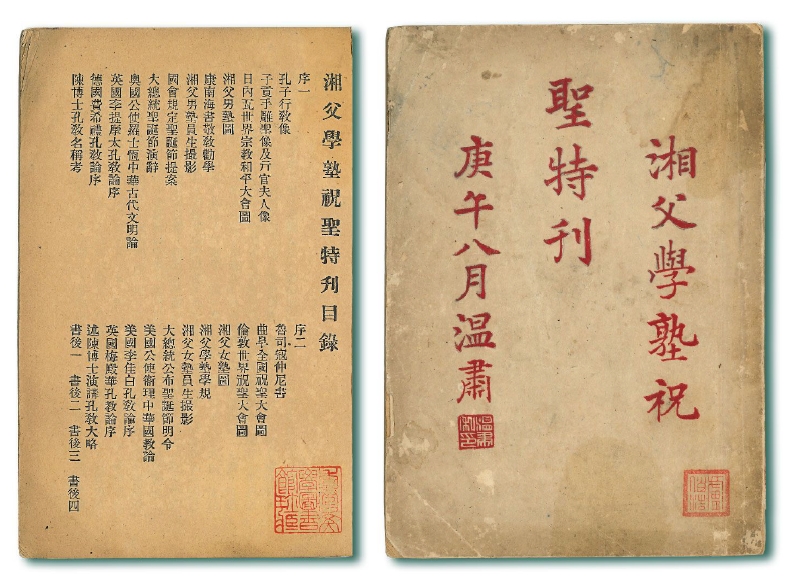 湘父學塾祝
聖特刊
庚午八月溫肅
溫肅
湘父學塾祝聖特刊目錄
序一 序二
孔子行敎像 魯司寇仲尼書
子貢手雕聖像及亓官夫人像 曲阜全國祝聖大會圖
日內瓦世界宗敎和平大會圖 倫敦世界祝聖大會圖
湘父男塾圖 湘父女塾圖
康南海書敬敎勸學 湘父學塾學規
湘父男塾員生撮影 湘父女塾員生撮影
國會規定聖誕節提案 大總統公布聖誕節明令
大總統聖誕節演辭 美國公使衛理中華國敎論
奧國公使羅士恆中華古代文明論 美國李佳白孔敎論序
英國李提摩太孔敎論序 英國梅殿華孔敎論序
德國費希禮孔敎論序 述陳博士演講孔敎大略
陳博士孔敎名稱考 書後一 書後二 書後三 書後四